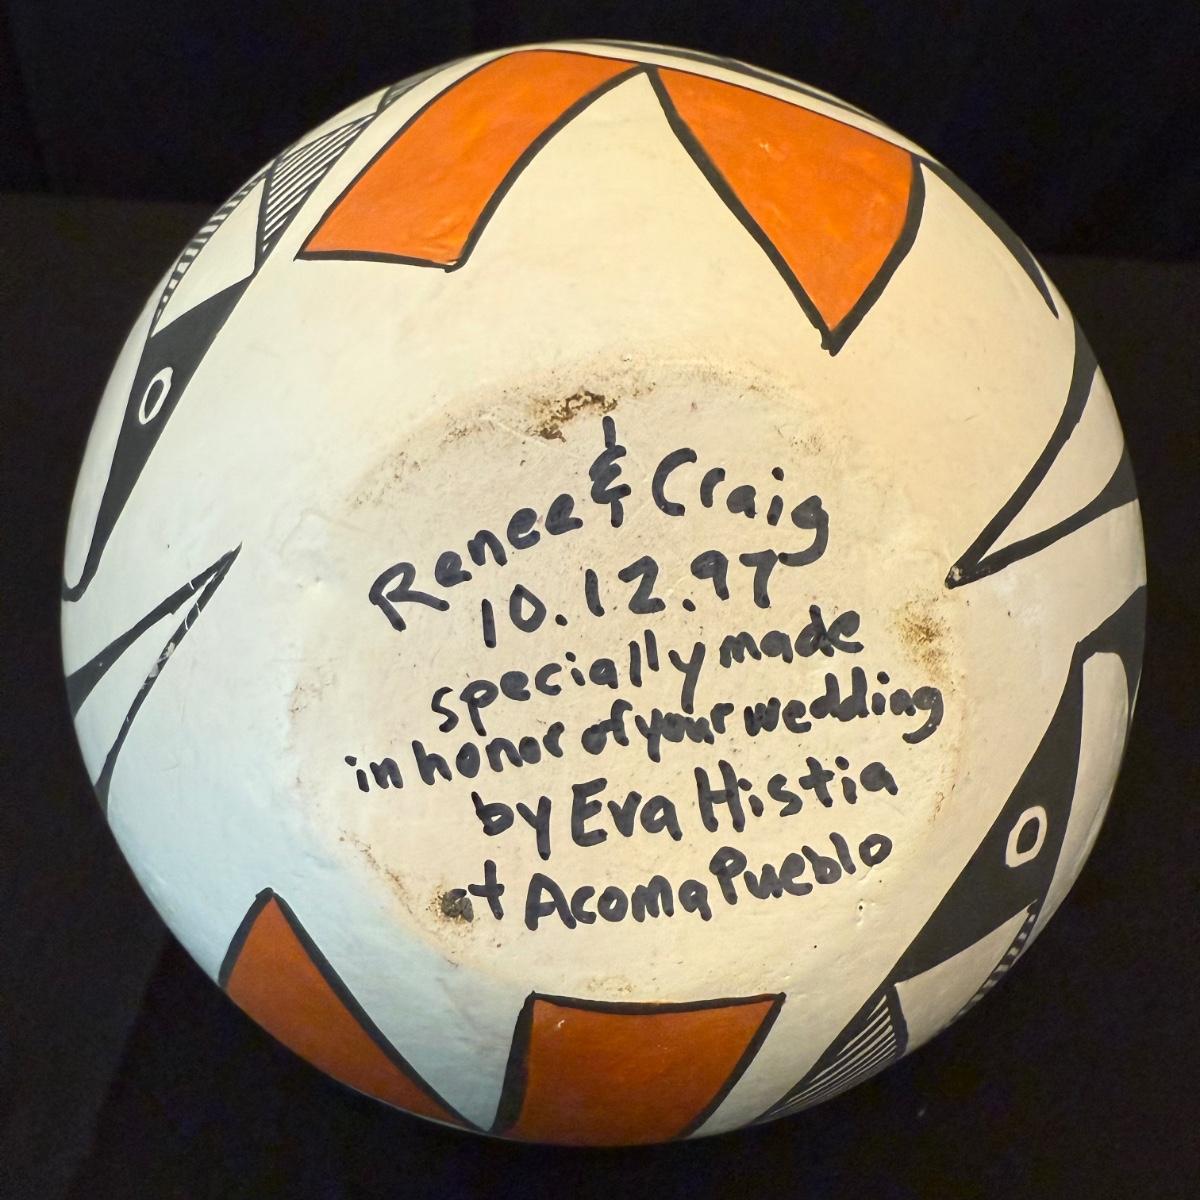 Renee & Craig
10.12.97
specially made
in honor of your wedding
by Eva Histia
at Acoma Pueblo